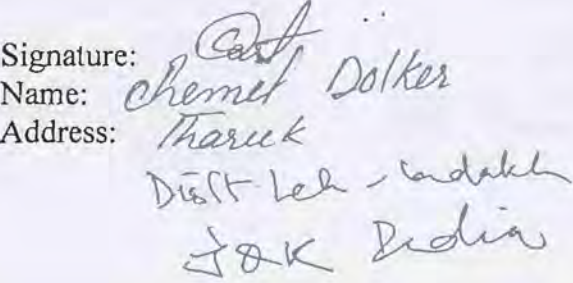 Signature:
Name: Chemet Dolker
Address: Tharuk
Distt Leh - Ladakh
J&K India